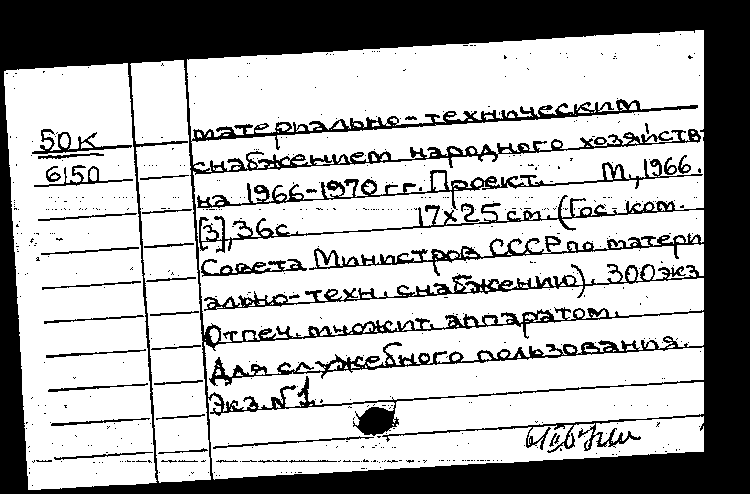 50К
6150
материально-техническим
снабжением народного хозяйств
на 1966-1970 гг. Проект. М., 1966.
[3], 36с. 17х25 см. (Гос. ком.
Совета Министров СССР по матери
ально-техн. снабжению). 300 экз
Отпеч. множит. аппаратом.
Для служебного пользования.
Экз. №1.